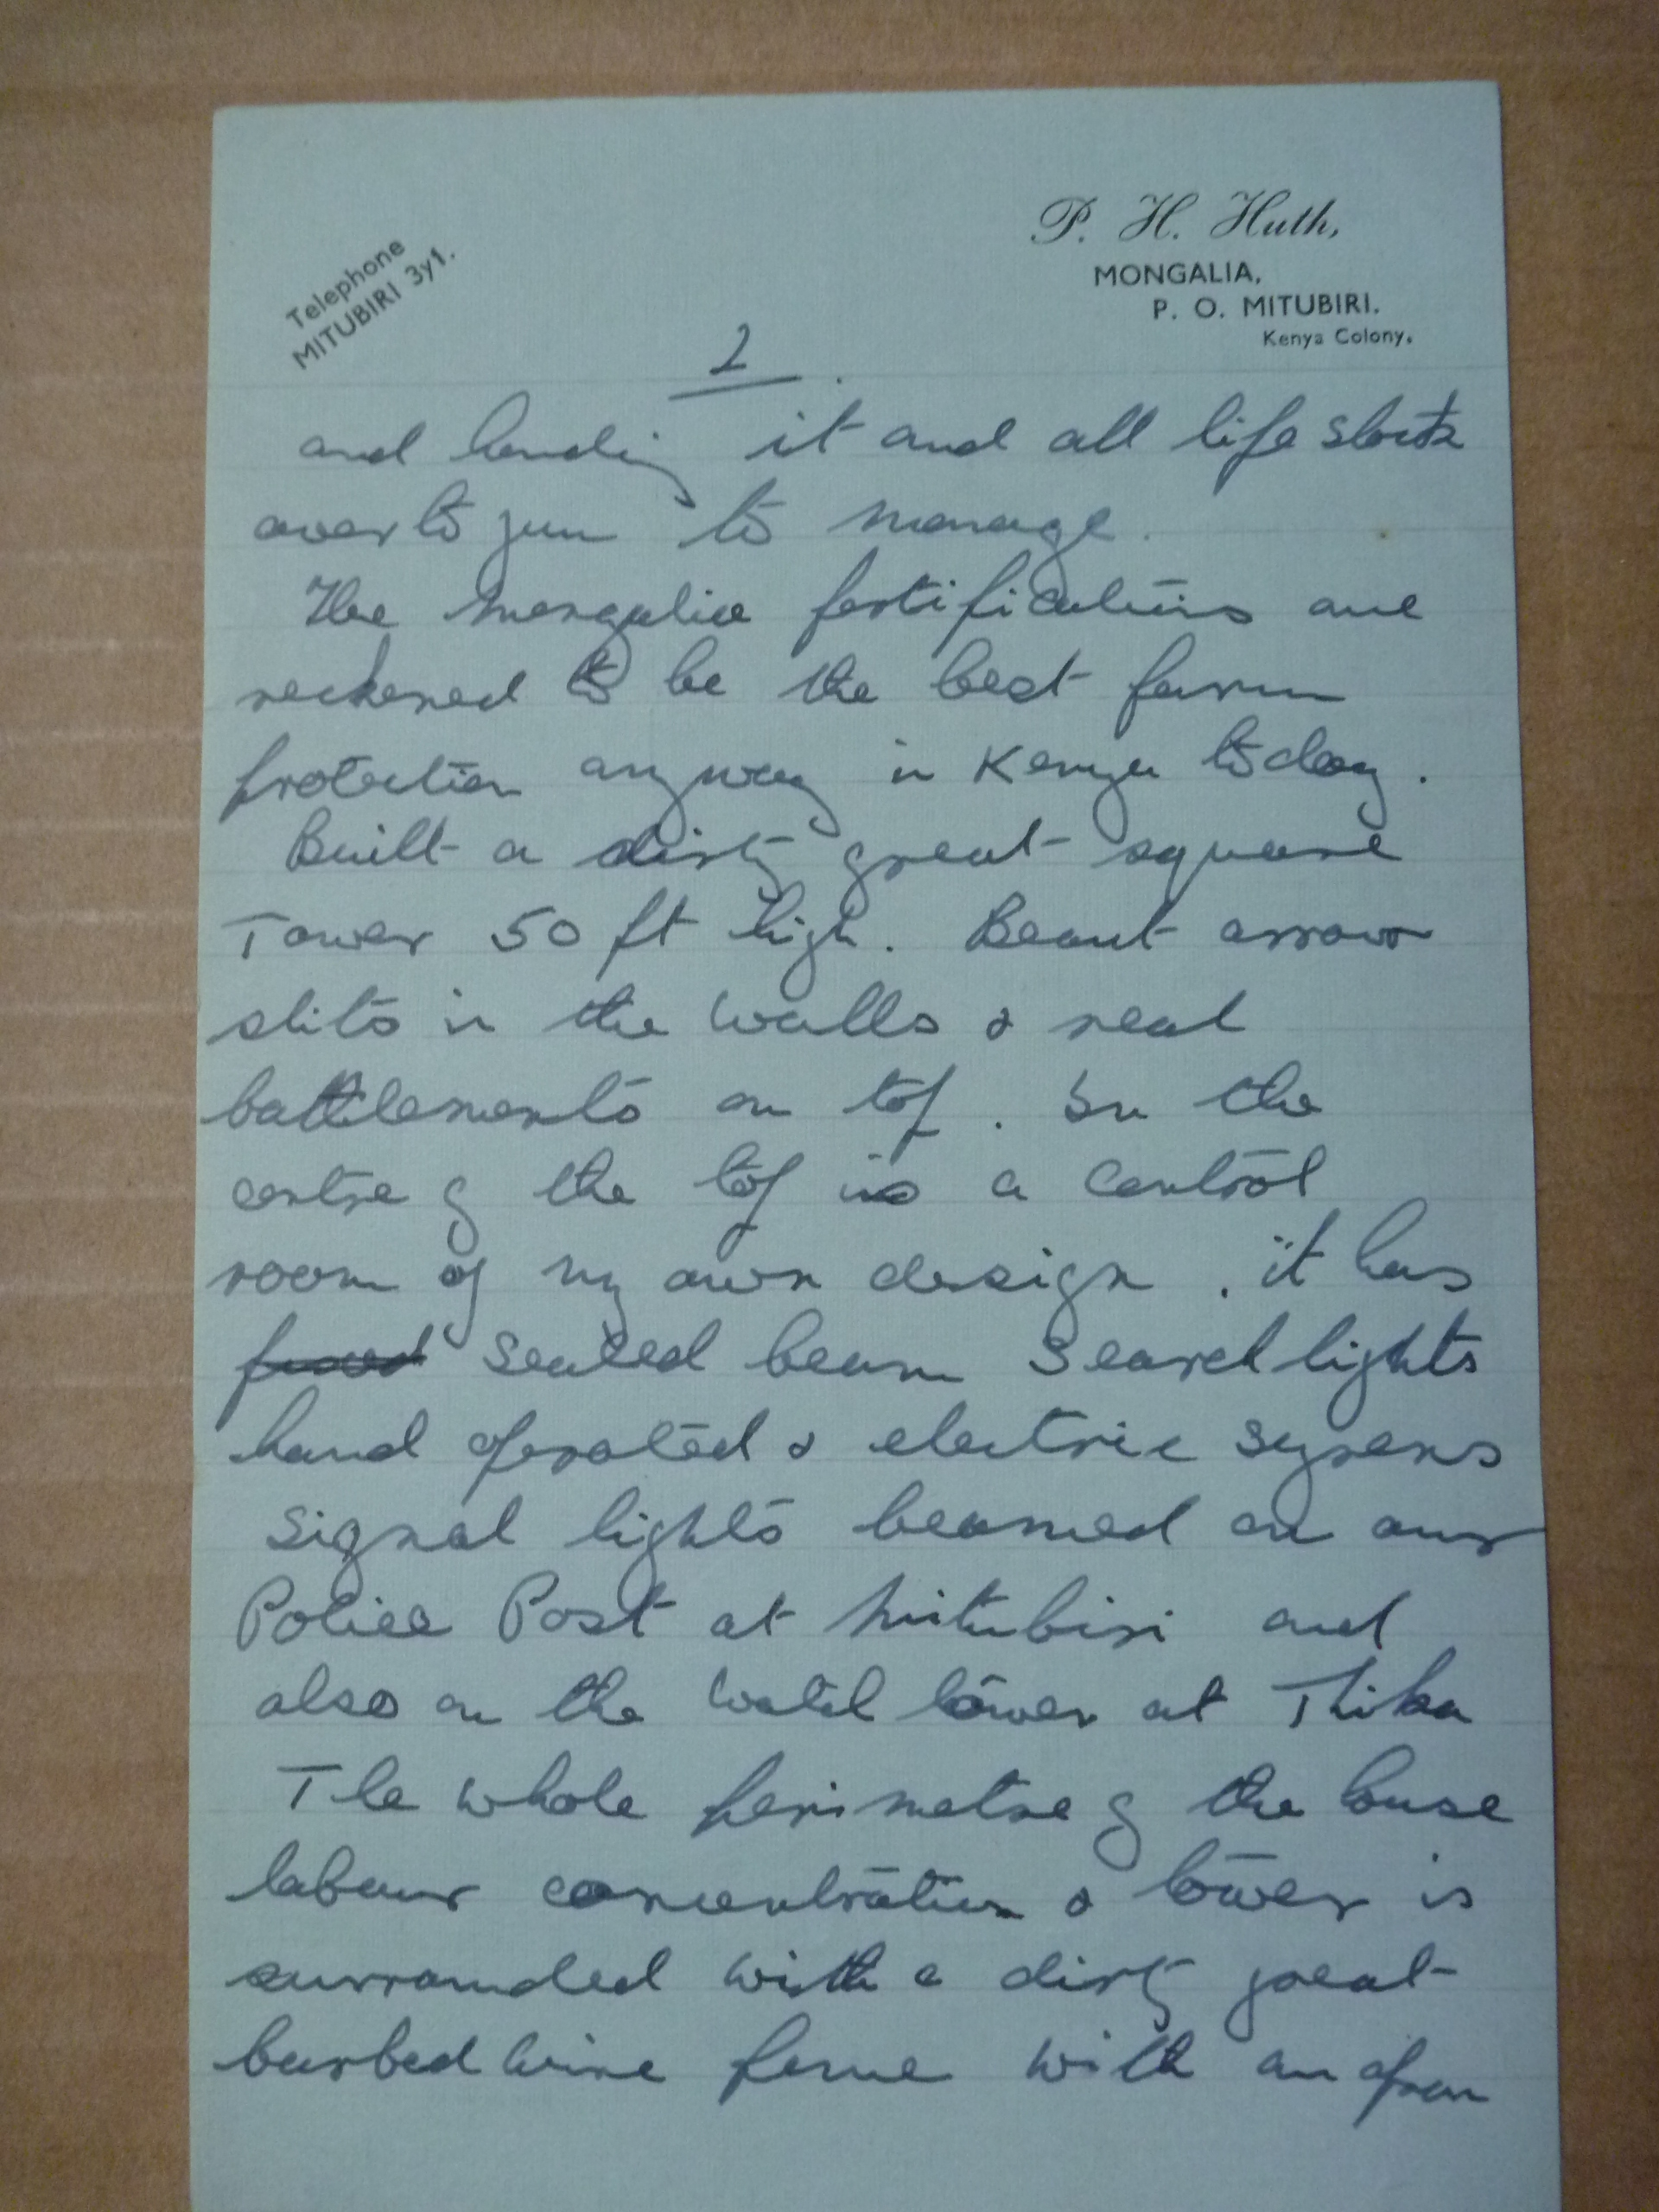 Telephone
MITUBIRI 3y1.
P. H. Huth,
MONGALIA,
P. O. MITUBIRI.
Kenya Colony.
2
and handing it and all life stock
over to Jim to manage.
The Mongalia fortifications are
reckened to be the best farm
protection anyway in Kenya today.
Built a dirty great square
Tower 50 ft high. Beaut arrow
slits in the walls & real
battlements on top. In the
centre of the top is a control
room of my own design. it has
sealed beam Search lights
hand operated & electric syrens
signal lights beamed on our
Police Post at Mitubiri and
also on the watch tower at Thika
The whole perimetre of the house
labour concentration & tower is
surrounded with a dirty great
barbed wire fence with an open